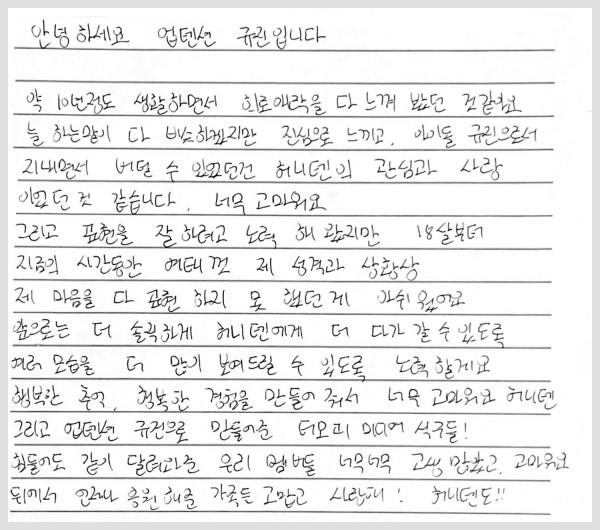 안녕하세요 업텐션 규진입니다
약 10년정도 생활하면서 희로애락을 다 느껴 봤던 것같아요
늘 하는말이 다 비슷하겠지만 진심으로 느끼고, 아이돌 규진으로서
지내면서 버틸 수 있었던건 허니텐의 관심과 사랑
이었던 것 같습니다. 너무 고마워요
그리고 표현을 잘 하려고 노력 해 왔지만 18살부터
지금의 시간동안 여태껏 제 성격과 상황상
제 마음을 다 표현 하지 못 했던게 아쉬웠어요
앞으로는 더 솔직하게 허니텐에게 더 다가 갈 수 있도록
여러 모습을 더 많이 보여드릴 수 있도록 노력할게요
행복한 추억, 행복한 경험을 만들어 줘서 너무 고마워요 허니텐
그리고 업텐션 규진으로 만들어준 티오피 미디어 식구들!
힘들어도 같이 달려와준 우리 멤버들 너무너무 고생 많았고, 고마워요
뒤에서 언제나 응원해준 가족들 고맙고 사랑해! 허니텐도!!